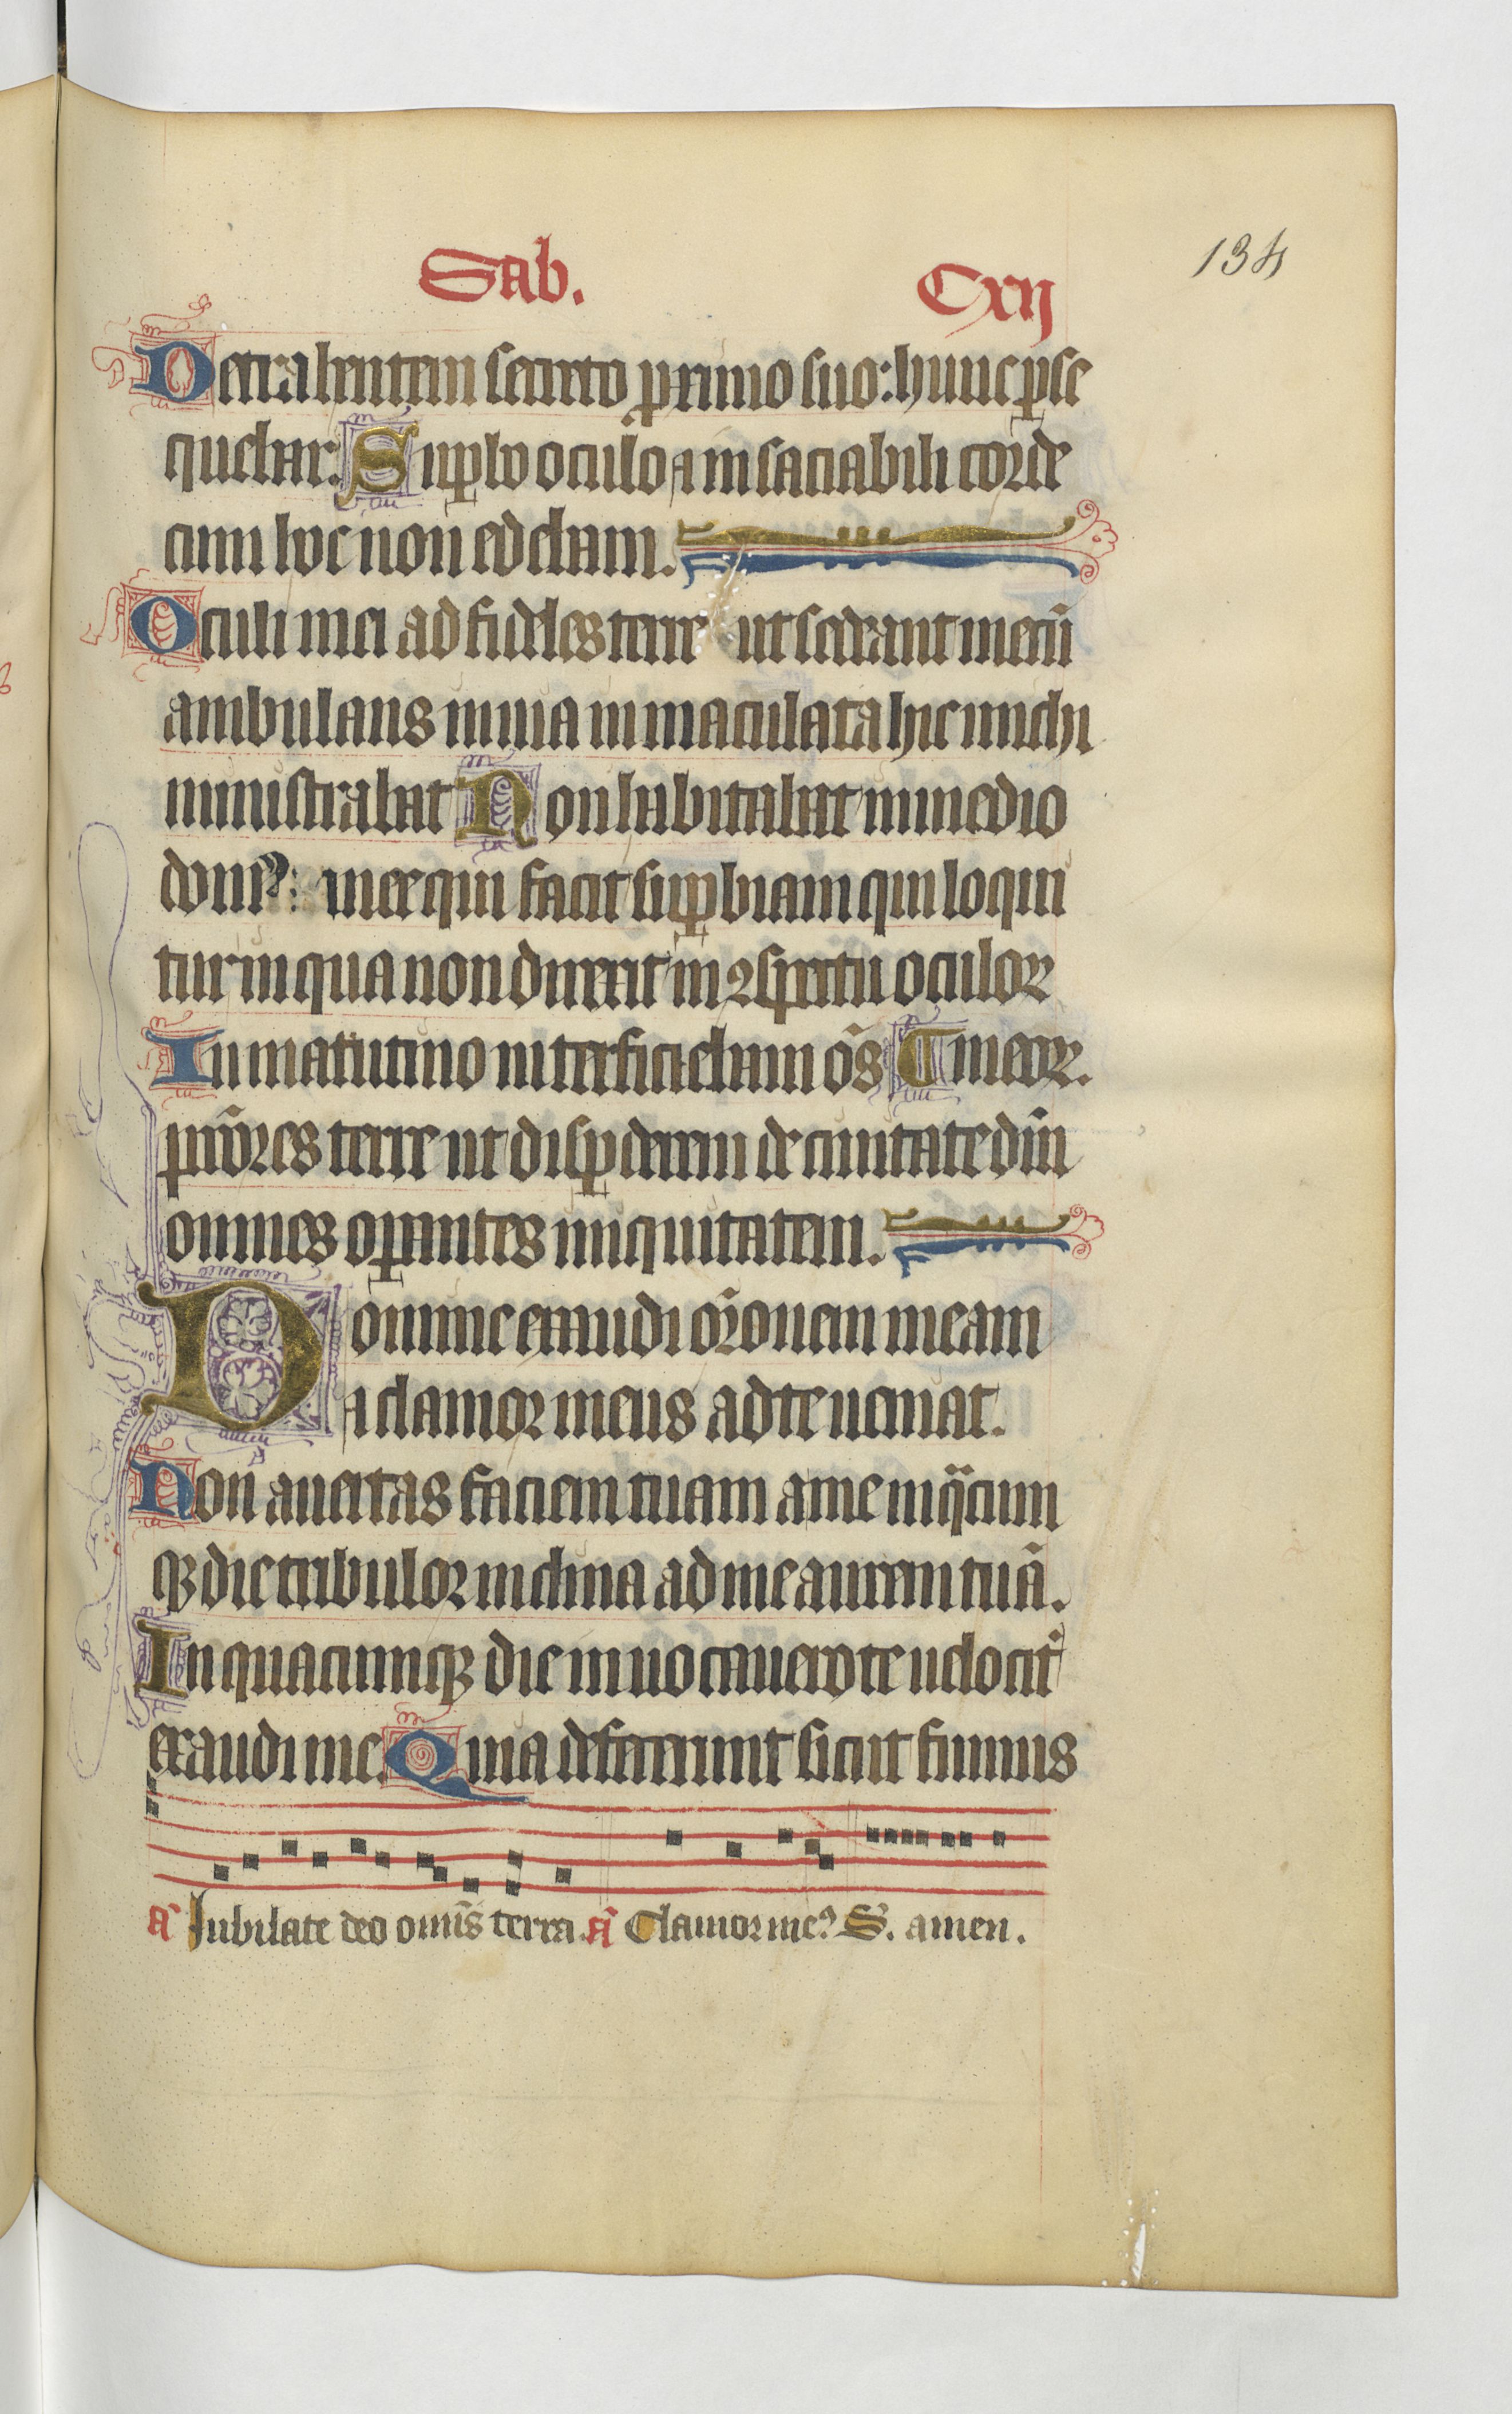 Sab. Cxij
134
Detrahentem secreto proximo suo: hunc perse
quebar. Superbo oculo ⁊ insaciabili corde
cum hoc non edebam.
Oculi mei ad fideles terre ut sedeant mecū
ambulans in uia immaculata hic michi
ministrabat Non habitabat in medio
domꝰ: mee qui facit superbiam qui loqui
tur iniqua non direxit in ꝯspectu oculoꝝ
In matutino interficiebam oēs meoꝝ.
pctōres terre ut disperderem de ciuitate dn̄i
omnes operantes iniquitatem.
Domine exaudi orōnem meam
⁊ clamor meus ad te ueniat.
Non auertas faciem tuam a me in q̄cum
qꝫ die tribulor inclina ad me aurem tuā.
In quacumqꝫ die inuocauero te uelociter
exaudi me. Quia defecerunt sicut fumus
a᷑ Iubilate deo omīs terra. a᷑ Clamor meꝰ S. amen.